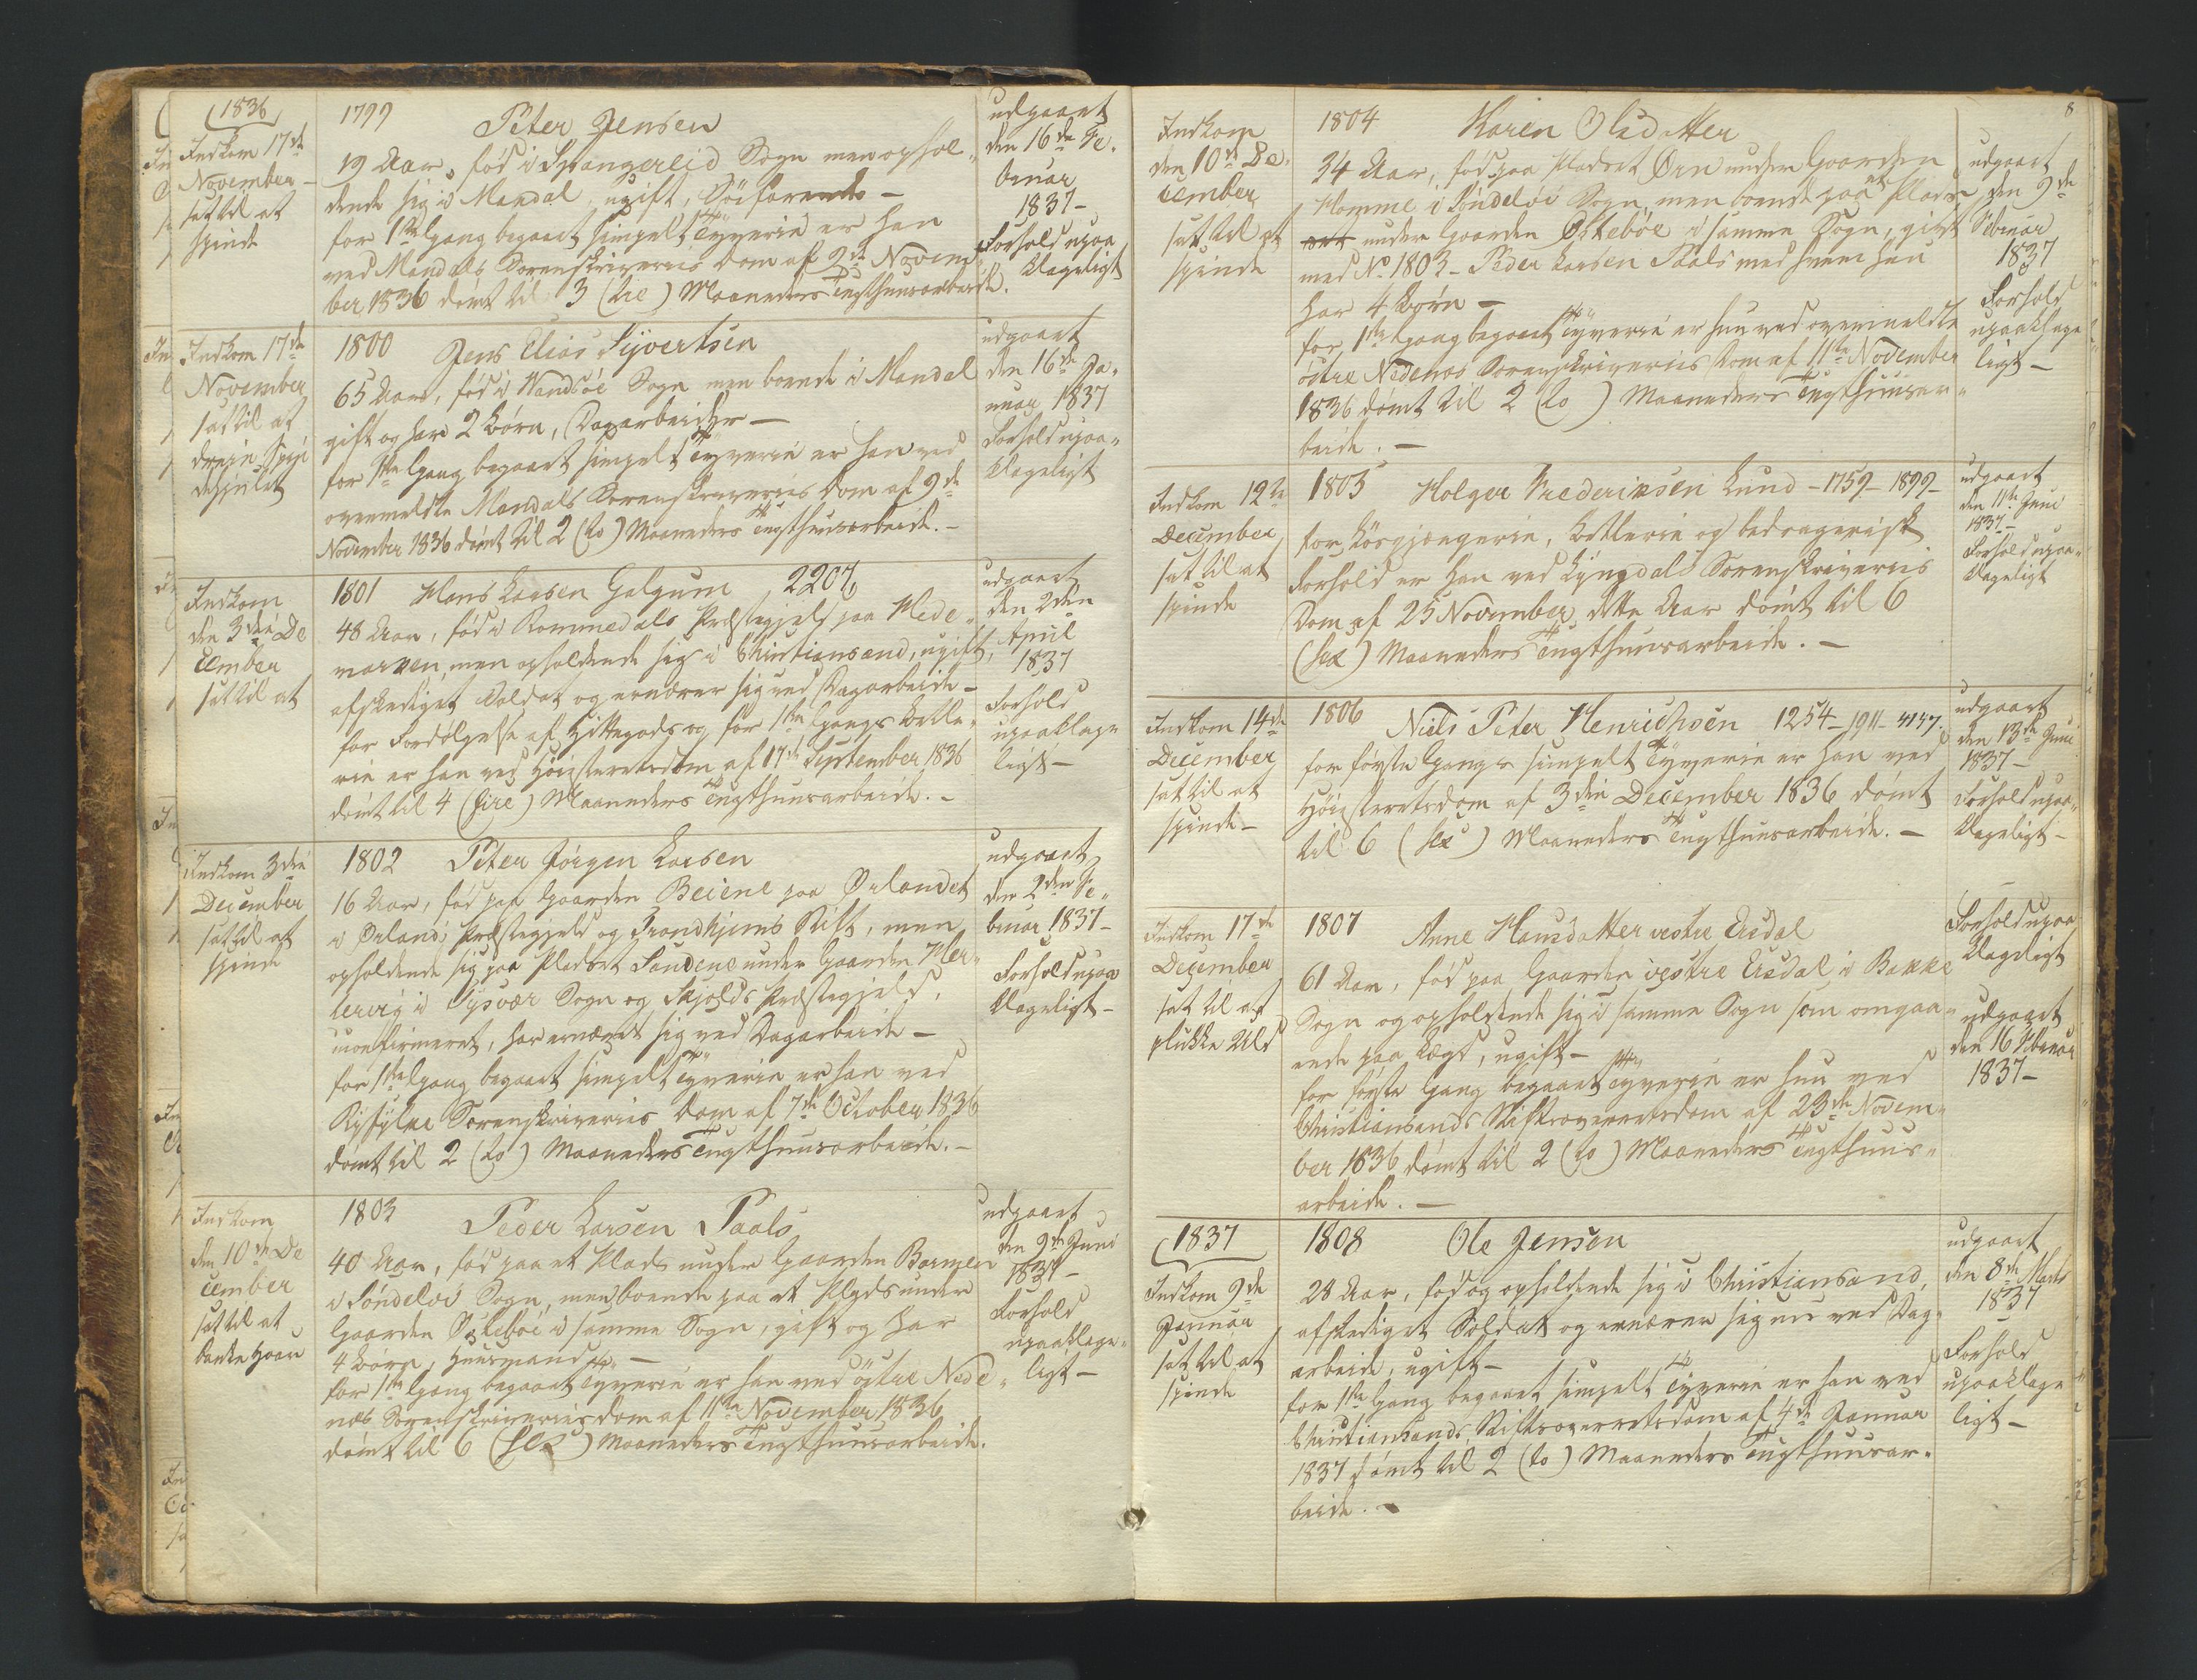 1836
Indkom 17de
November –
sat til at
spinde
1799 Peter Jensen
19 Aar, fød i Spangereid Sogn men ophol„
dende sig i Mandal, ugift, Söefarende –
for 1ste Gang begaaet simpelt Tyverie er han
ved Mandals Sorenskriveries Dom af 2de Novem„
ber 1836 dömt til 3 (tre) Maaneders Tugthuusarbeide.
udgaaet
den 16de Fe„
bruar
1837 –
Forhold upaa
klageligt
Indkom 17de
November
sat til at
1800 Jens Elias Sijvertsen
65 Aar, fød i Sogn men boende i Mandal
gift og har 2 Börn, Dagarbeider –
for 1ste Gang begaaet simpelt Tyverie er han ved
ovenmeldte Mandals Sorenskriveries Dom af 9de
November 1836 dömt til 2 (to) Maaneders Tugthuusarbeide. –
udgaaet
den 16de Ja„
nuar 1837
Forhold upaa„
klageligt
Indkom
den 3die De
cember
sat til at
1801 Hans Larsen Galgum 2207,
48 Aar, fød i Rommedals Præstegjeld paa Hede„
marken, men opholdende sig i Christiansand, ugift,
afskediget Soldat og ernærer sig ved Dagarbeide –
for Fordölgelse af Hittegods og for 1ste Gangs Betle„
rie er han ved Höiesteretsdom af 17de September 1836
dömt til 4 (fire) Maaneders Tugthuusarbeide. –
udgaaet
den 2den
April
1837
Forhold
upaaklage
ligt –
Indkom 3die
December
sat til at
spinde
1802 Peter Jörgen Larsen
16 Aar, fød paa Gaarden Beiene paa Ørlandet
i Ørlands Præstegjeld og Trondhjems Stift, men
opholdende sig paa Pladset Sandene under Gaarden Her„
lervig i Tysvær Sogn og Skjolds Præstegjeld,
uconfirmeret, har ernæret sig ved Dagarbeide –
for 1ste Gang begaaet simpelt Tyverie er han ved
Ryfylke Sorenskriveries Dom af 7de October 1836
dömt til 2 (to) Maaneders Tugthuusarbeide. –
udgaaet
den 2den Fe„
bruar 1837 –
Forhold upaa
klageligt –
Indkom
den 10de De
cember
sat til at
banke Haar
1803 Peder Larsen Paals
40 Aar, fød paa et Plads under Gaarden Barmen
i Söndelöv Sogn, men boende paa et Plads under
Gaarden Östeböe i samme Sogn, gift og har
4 Börn, Huusmand –
for 1ste Gang begaaet Tyverie er han ved östre Nede„
næs Sorenskriveries Dom af 11te November 1836
dömt til 6 (sex) Maaneders Tugthuusarbeide.
udgaaet
den 9de Juni
1837 –
Forhold
upaaklage„
ligt –
8
Indkom
den 10de De„
cember
sat til at
spinde
1804 Karen Olsdatter
34 Aar, fød paa Pladset Ørn under Gaarden
Homme i Söndelöv Sogn, men boende paa et Plads
under Gaarden Östeböe i samme Sogn, gift
med No 1803 – Peder Larsen Paals med hvem hun
har 4 Börn –
for 1ste Gang begaaet Tyverie er hun ved ovenmeldte
östre Nedenæs Sorenskriveries Dom af 11te November
1836 dömt til 2 (to) Maaneders Tugthuusar„
beide. –
udgaaet
den 9de
Februar
1837
Forhold
upaaklage
ligt –
Indkom 12te
December
sat til at
spinde
1805 Holger Frederiksen Lund – 1759 – 1899 –
for Lösgjængerie, Betlerie og bedragerisk
Forhold er han ved Lyngdals Sorenskriveries
Dom af 25 November dette Aar dömt til 6
(sex) Maaneders Tugthuusarbeide. –
udgaaet
den 11te Juni
1837 –
Forhold upaa„
klageligt
Indkom 14de
December
sat til at
spinde –
1806 Niels Peter Henrichsen 1254 – 1911 –
for förste Gangs simpelt Tyverie er han ved
Höiesteretsdom af 3die December 1836 dömt
til 6 (sex) Maaneders Tugthuusarbeide. –
udgaaet
den 13de Juni
1837 –
Forhold upaa„
klageligt –
Indkom 17de
December
sat til at
plukke Uld
1807 Anne Hansdatter vestre Eisdal
61 Aar, fød paa Gaarden vestre Eisdal i Bakke
Sogn og opholdende sig i samme Sogn som omgaa„
ende paa Lægd, ugift –
for förste Gang begaaet Tyverie er hun ved
Christiansands Stiftsoverretsdom af 23de Novem„
ber 1836 dömt til 2 (to) Maaneders Tugthuus„
arbeide. –
Forhold upaa
klageligt
udgaaet
den 16 Februar
1837 –
1837
Indkom 9de
Januar
sat til at
spinde
1808 Ole Jensen
28 Aar, fød og opholdende sig i Christiansand,
afskediget Soldat og ernærer sig nu ved Dag„
arbeide, ugift –
for 1ste Gang begaaet simpelt Tyverie er han ved
Christiansands Stiftsoverretsdom af 4de Januar
1837 dömt til 2 (to) Maaneders Tugthuusar„
beide. –
udgaaet
den 8de Marts
1837
Forhold
upaaklage
ligt –